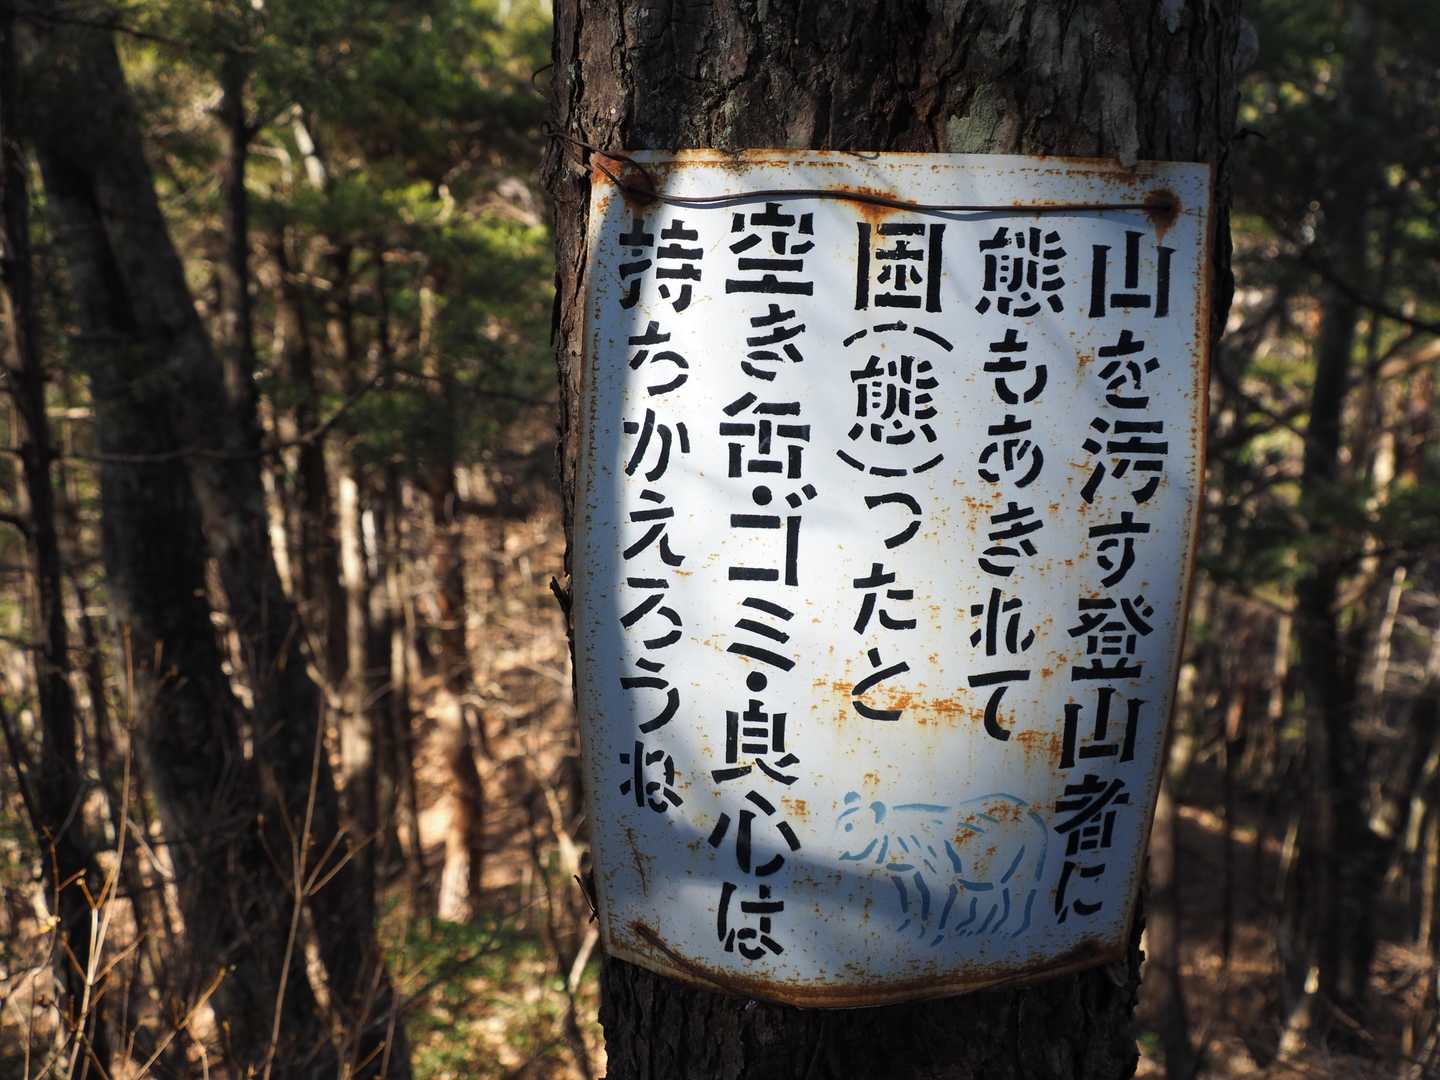 山を汚す登山者に
熊もあきれて
困(熊)つたと
空き缶・ゴミ・良心は
持ちかえろうね